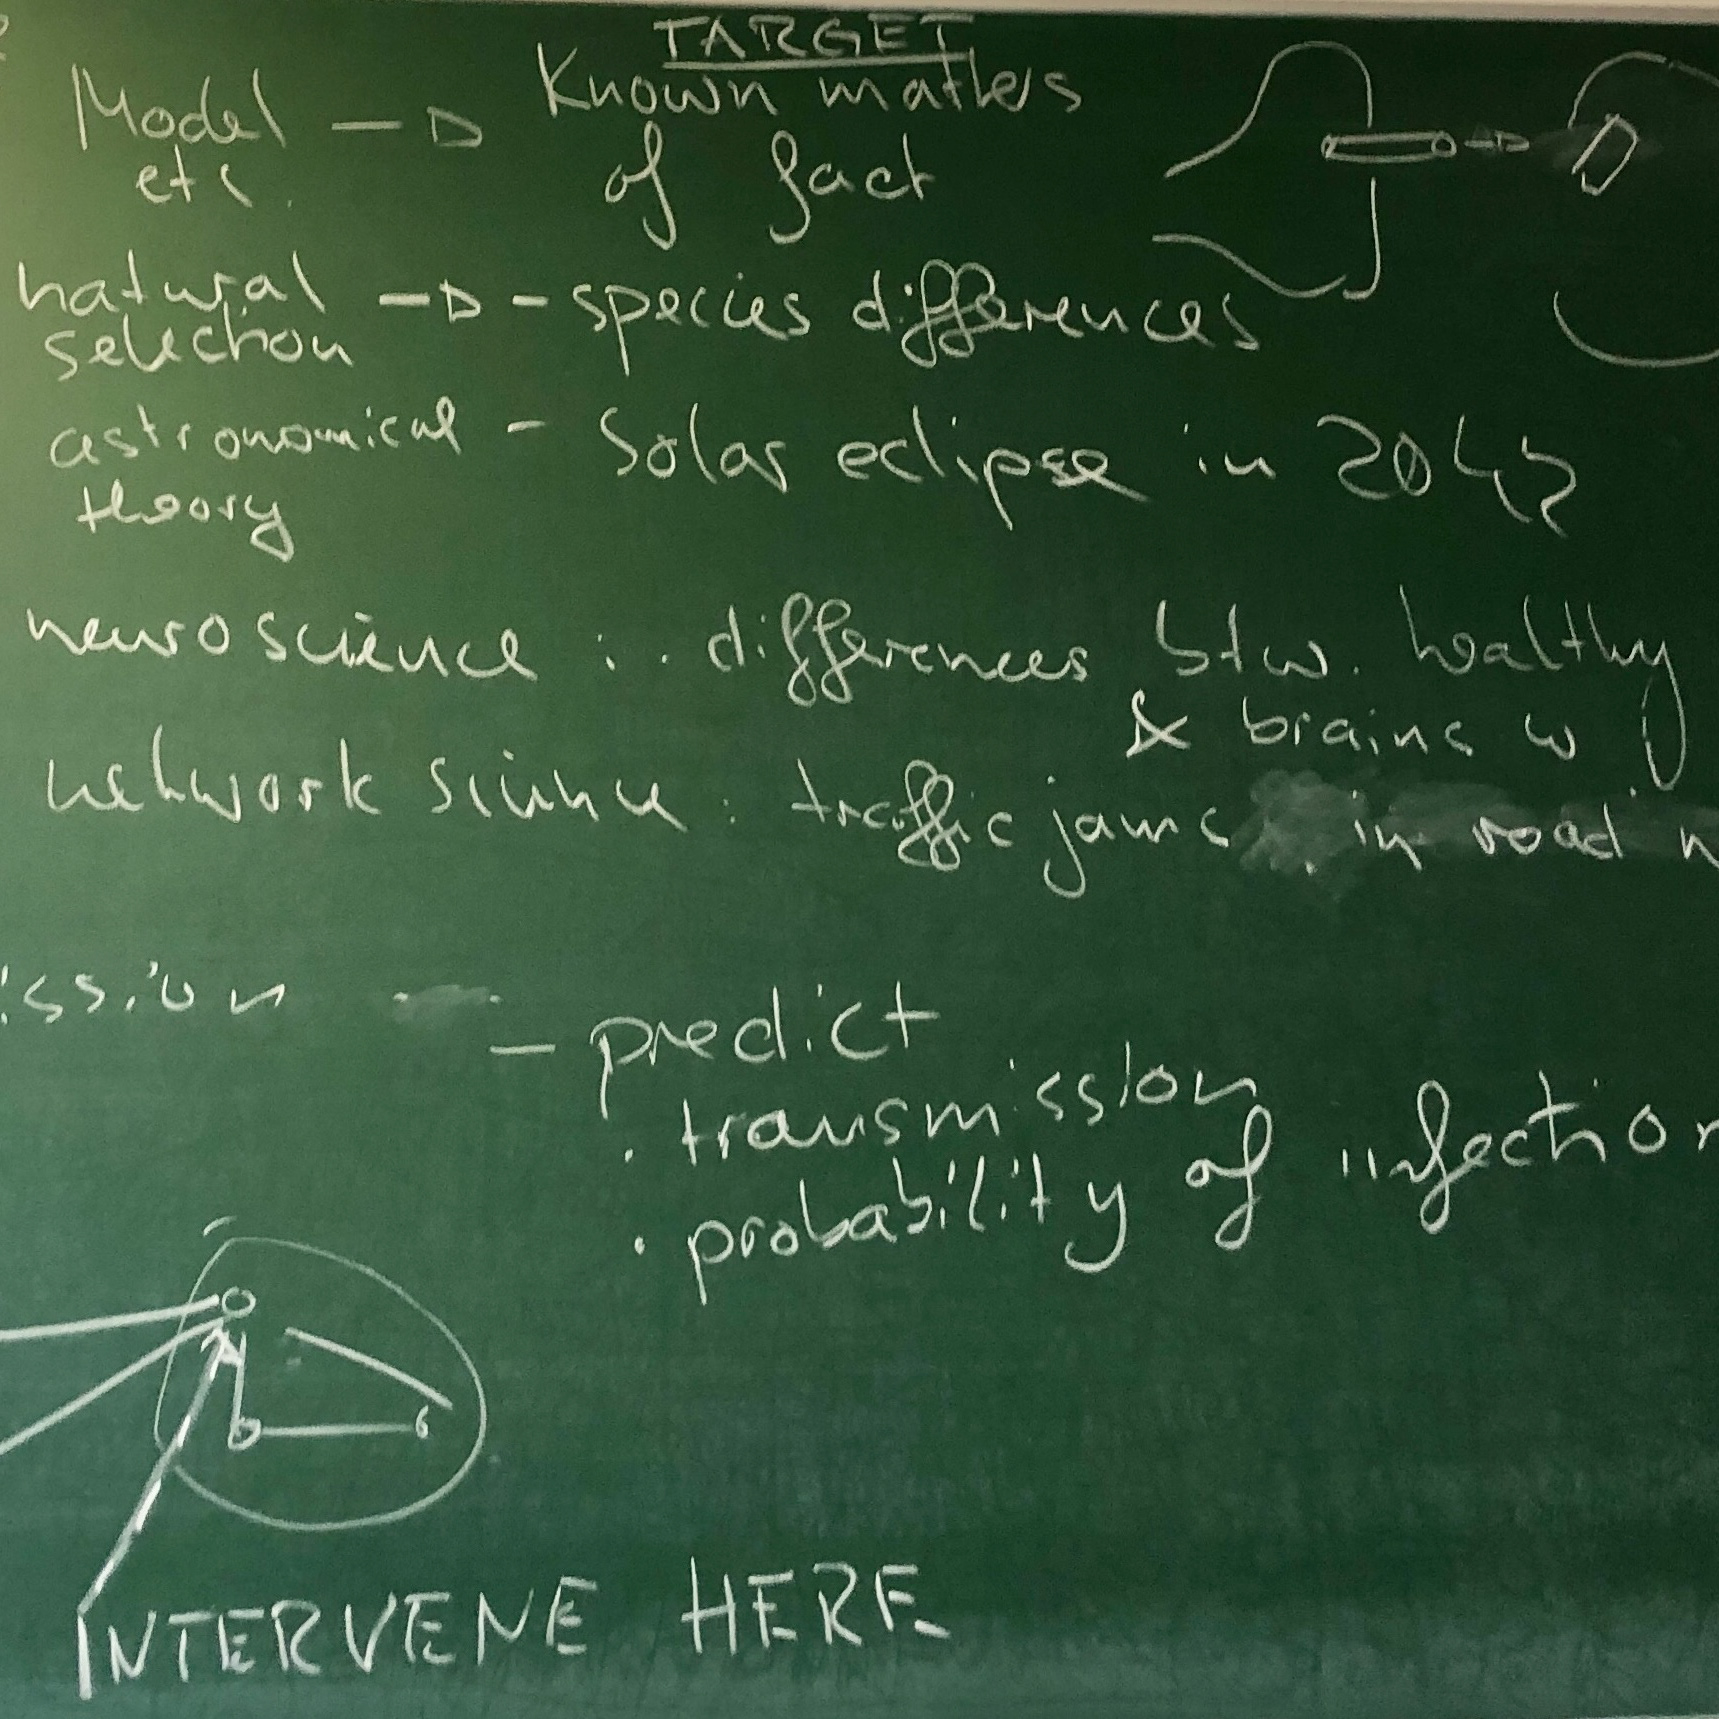 TARGET
Model —▷ Known matters
etc. of fact
natural —▷ - species differences
selection
astronomical - Solar eclipse in 2042
theory
neuroscience : . differences btw. healthy
& brains w
network science : traffic jams in road n
ission
— predict
. transmission
. probability of infection
INTERVENE HERE